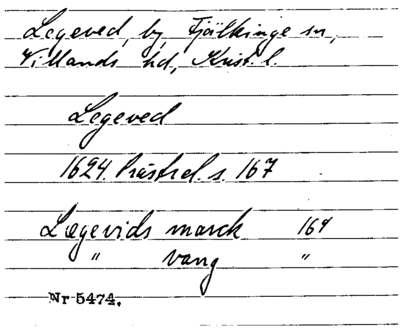 Legeved, by, Fjälkinge sn,
Villands hd, Krist. l.
Legeved
1624. Prästrel. s. 167
Lægevids marck 169
" vang "
Nr 5474.